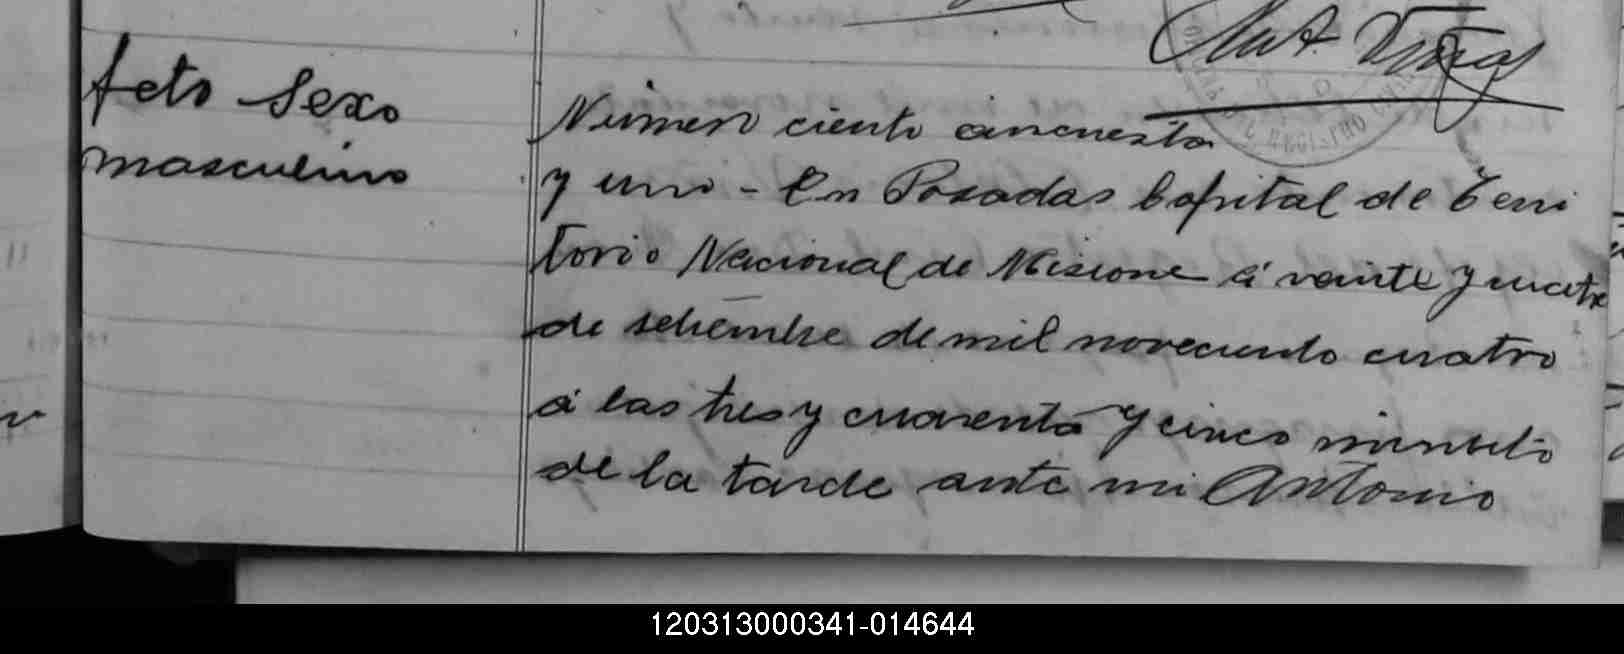 Ant Viñas
feto Sexo
masculino
Número ciento cincuenta
y uno - En Posadas Capital de Terri
torio Nacional de Misione á veinte y
de setiembre de mil noveciento cuatro
á las tres y cuarenta y cinco minuto
de la tarde ante mi Antonio
120313000341-014644